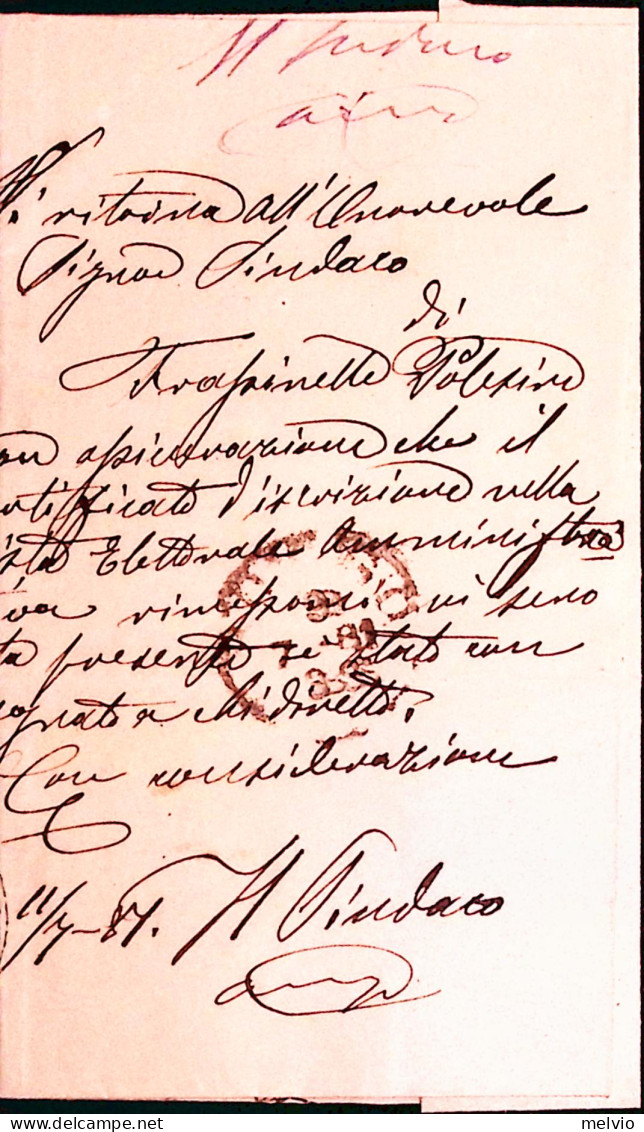 Il Sindaco
Si ritorna all'Onorevole
Signor Sindaco
di
Frassinelle Polesine
con assicurazione che il
certificato d'iscrizione nella
lista Elettorale Amministra
tiva rimessomi
presente è stato con
segnato a chi diretto.
Con considerazione
11/7-87. Il Sindaco
delcampe.net
melvio